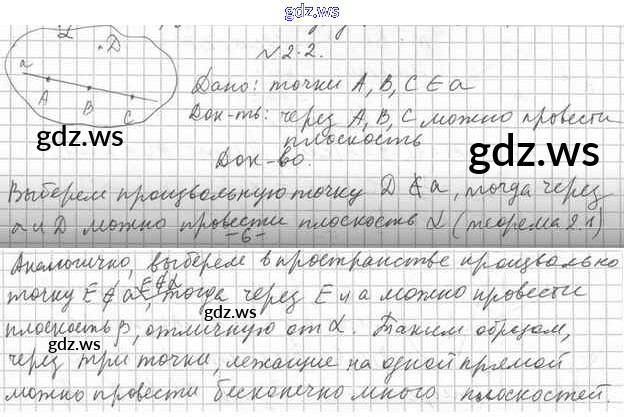 gdz.ws
№2.2.
α
D
a
A
B
C
Дано: точки A, B, C ∈ a
Док-ть: через A, B, C можно провести
плоскость
Док-во.
gdz.ws
gdz.ws
Выберем произвольную точку D ∉ a, тогда через
a и D можно провести плоскость α (теорема 2.1)
-6-
Аналогично, выберем в пространстве произвольно
точку E ∉ a, E ∉ α, тогда через E и a можно провести
gdz.ws
плоскость β, отличную от α. Таким образом,
через три точки, лежащие на одной прямой
gdz.ws
можно провести бесконечно много плоскостей.